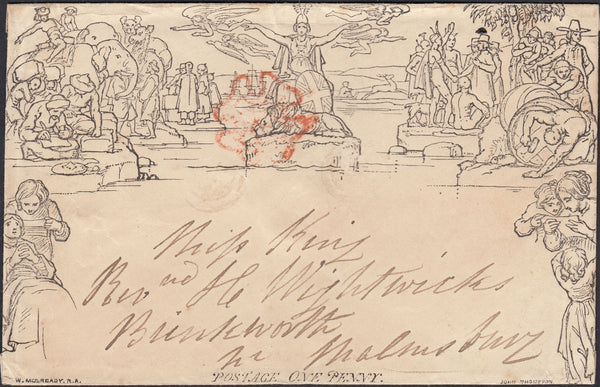 Miss King
Revnd H Wightwicks
Brinkworth
nr Malmsbury
W. MULREADY. R.A.
POSTAGE ONE PENNY.
JOHN THOMPSON